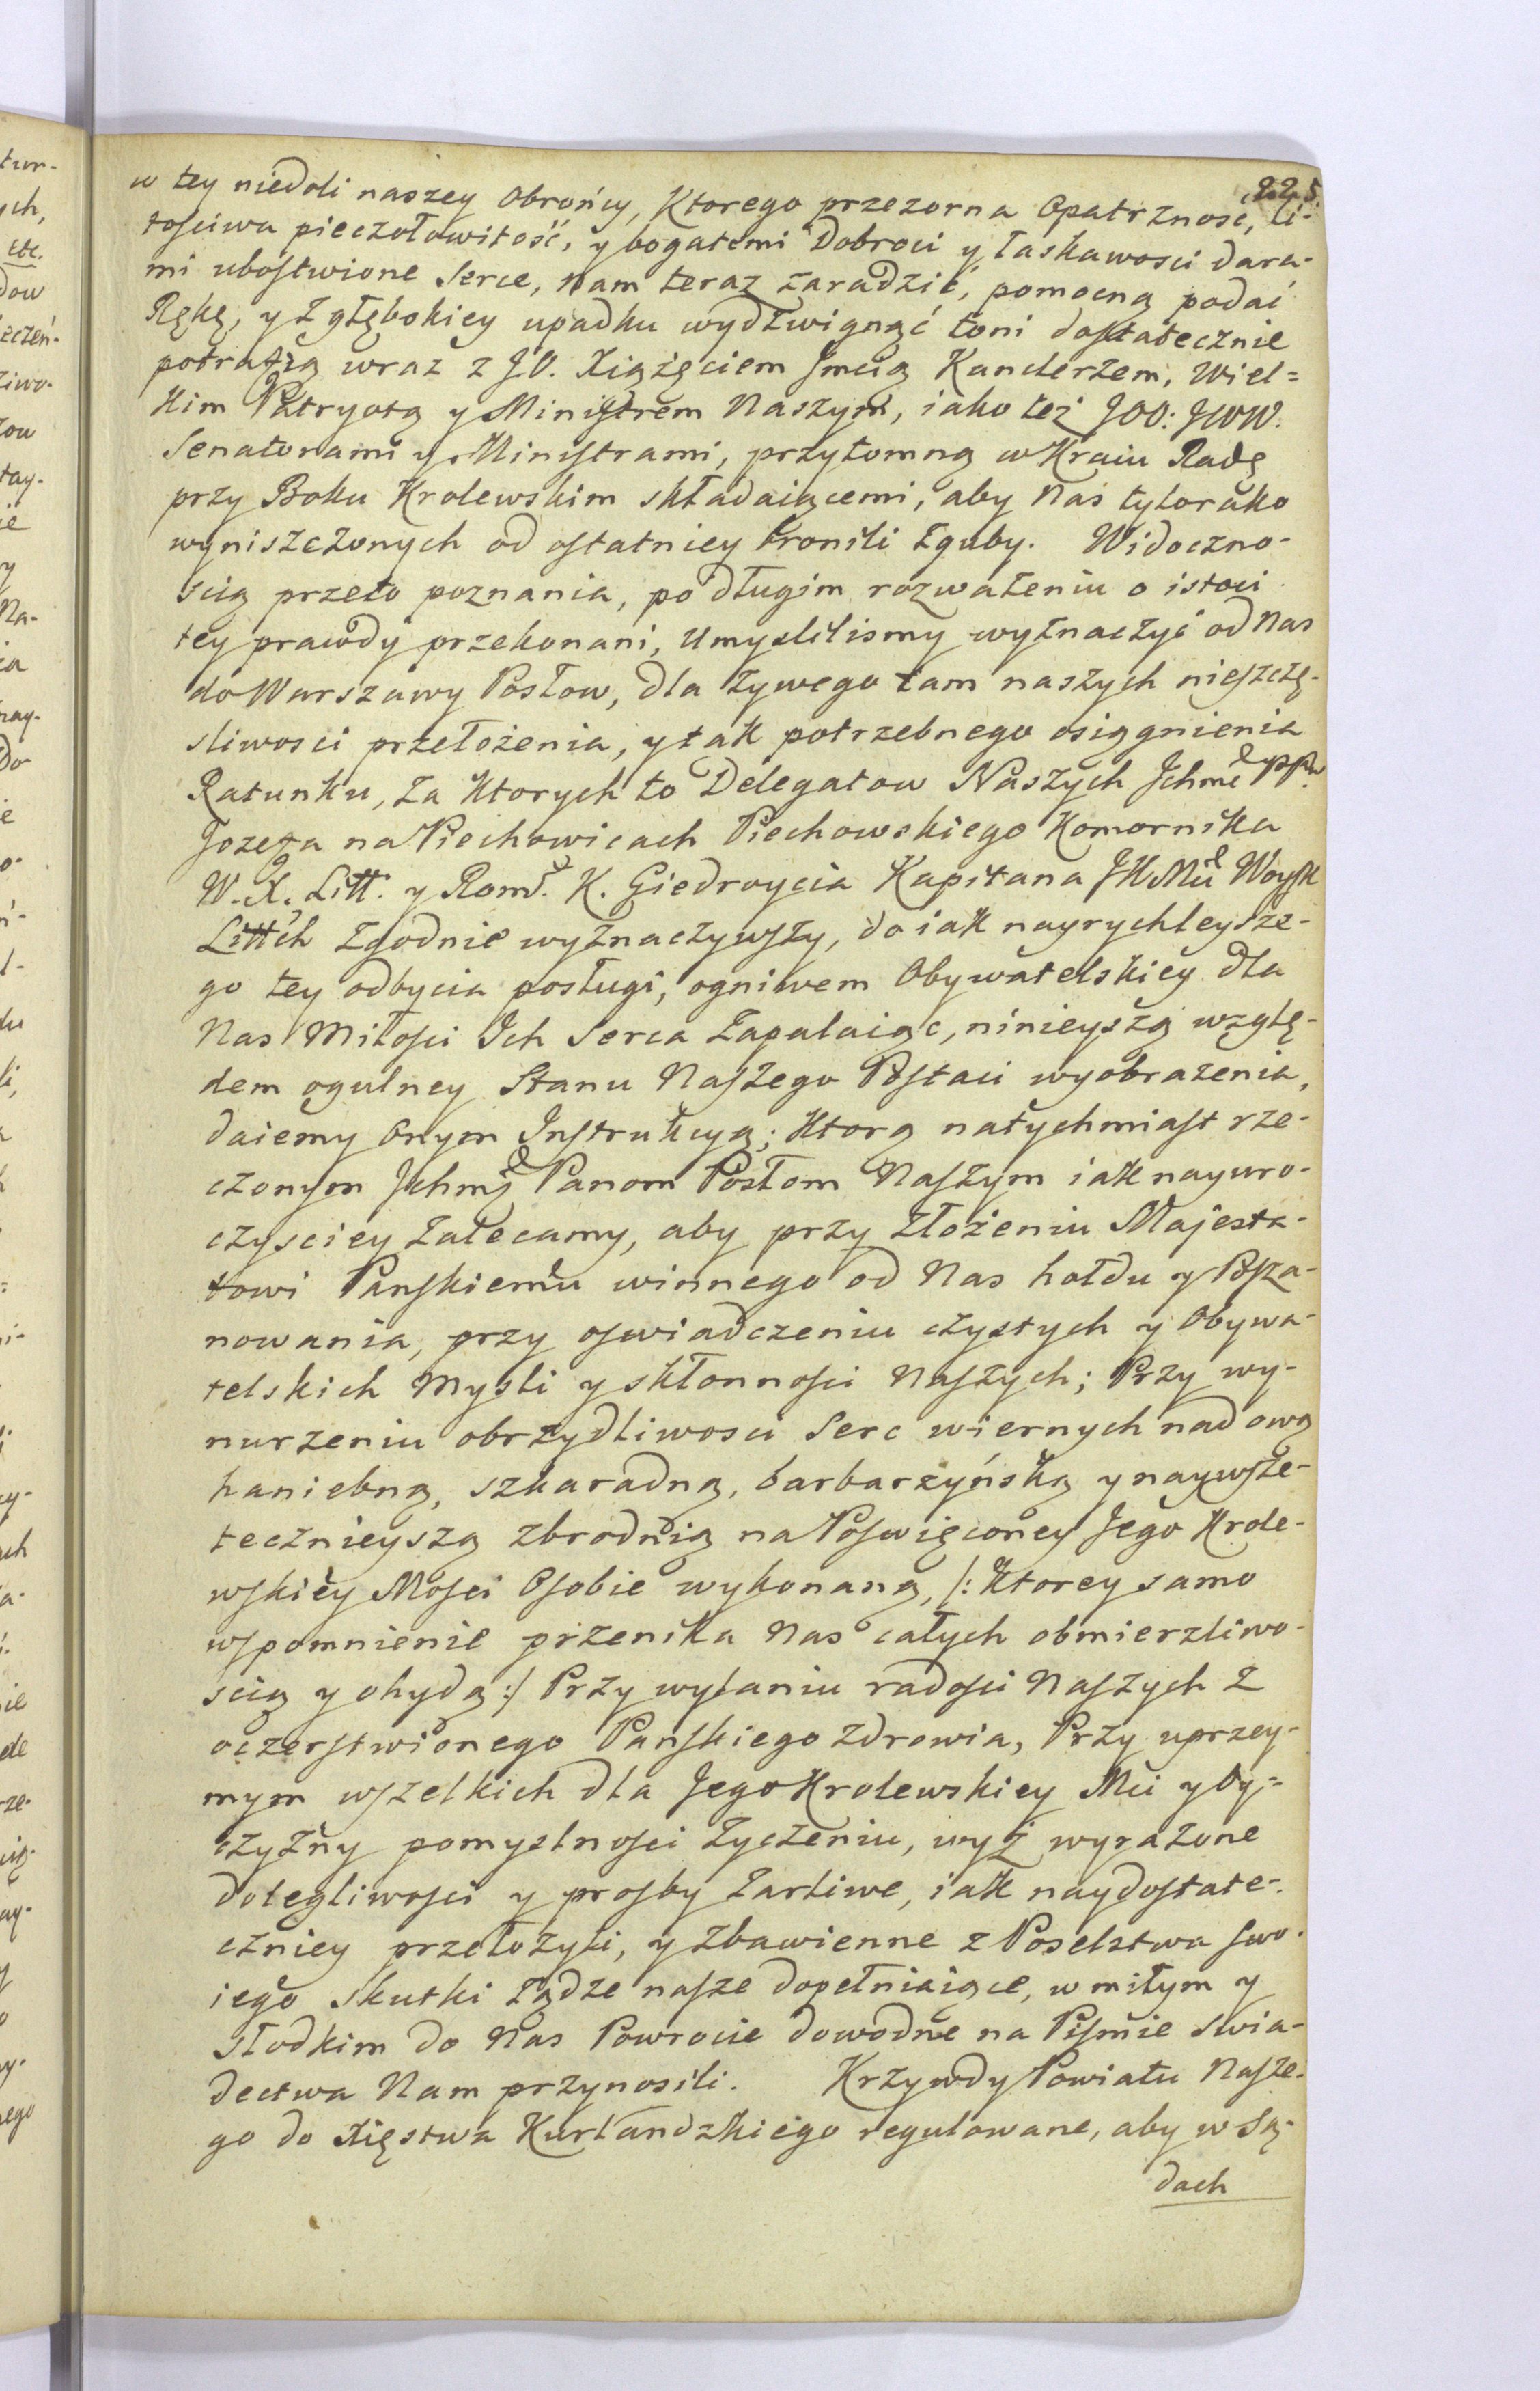 225
w tey niedoli naszey Obrońcy, Ktorego przezorna Opatrznosć, li-
tosciwa pieczołowitość, y bogatemi Dobroci y łaskawosci dara-
mi ubostwione Serce, Nam teraz zaradzić, pomocną podać
Rękę, y z głębokiey upadku wydzwignąć toni dostatecznie
potrafią wraz z JO. Xiążęciem Jmcią Kanclerzem, Wiel=
kim Patryotą y Ministrem Naszym, iako też JOO: JWW.
Senatorami y Ministrami, przytomną w Kraiu Radę
przy Boku Krolewskim składaiącemi, aby Nas tylorako
wyniszczonych od ostatniey bronili zguby. Widoczno-
scią przeto poznania, po długim rozważeniu o istoci
tey prawdy przekonani, Umyslilismy wyznaczyć od Nas
do Warszawy Posłow, dla żywego tam naszych nieszczę-
sliwosci przełożenia, y tak potrzebnego osiągnienia
Ratunku, za Ktorych to Delegatow Naszych Jchmć PPw
Jozefa na Piechowicach Piechowskiego Komornika
W. X. Litt. y Rom. K. Giedroycia Kapitana JKMci Woysk
Littch zgodnie wyznaczywszy, do iak nayrychleysze-
go tey odbycia posługi, ogniwem Obywatelskiey dla
Nas Miłosci Jch Serca zapalaiąc, ninieyszą wzglę-
dem ogulney Stanu Naszego Postaci wyobrażenia,
daiemy Onym Jnstrukcyą; Ktorą natychmiast rze-
czonym Jchmć Panom Posłom Naszym iak nayuro-
czysciey zalecamy, aby przy złożeniu Majesta-
towi Panskiemu winnego od Nas hołdu y Posza-
nowania, przy oswiadczeniu czystych y Obywa-
telskich Mysli y skłonnosci Naszych; Przy wy-
nurzeniu obrzydliwosci Serc wiernych nad ową
haniebną, szkaradną, barbarzyńską y naywsze-
tecznieyszą zbrodnią na Poswięconey Jego Krole-
wskiey Mosci Osobie wykonaną, /: Ktorey samo
wspomnienie przenika Nas całych obmierzliwo-
scią y ohydą :/ Przy wylaniu radosci Naszych z
oczerstwionego Panskiego zdrowia, Przy uprzey-
mym wszelkich dla Jego Krolewskiey Mci y Oy=
czyzny pomyslnosci życzeniu, wyż wyrażone
dolegliwosci y prosby żarliwe, iak naydostate-
czniey przełożyli, y zbawienne z Poselstwa swo-
iego skutki żądze nasze dopełniaiące, w miłym y
słodkim do Nas Powrocie dowodne na Pismie swia-
dectwa Nam przynosili. Krzywdy Powiatu Nasze-
go do Xięstwa Kurlandzkiego regulowane, aby w Są-
dach